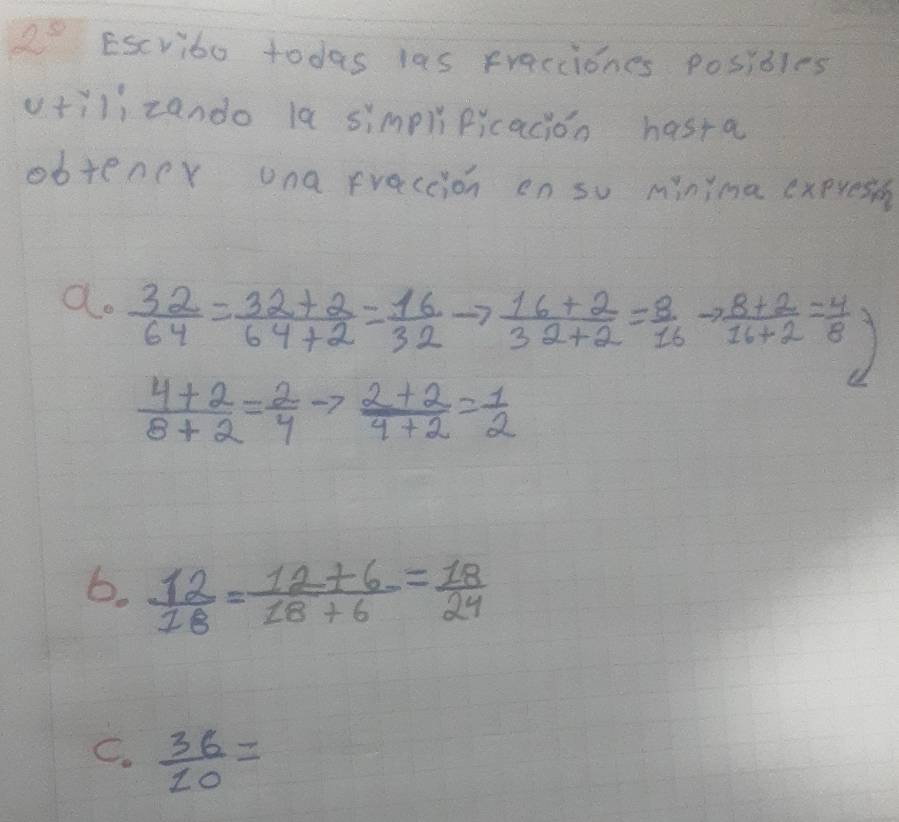 2° Escribo todas las fracciónes posibles
utilizando la simplificación hasta
obtener una fracción en su minima expresión
a. 32/64 = 32+2/64+2 = 16/32 → 16+2/32+2 = 8/16 → 8+2/16+2 = 4/8
4+2/8+2 = 2/4 → 2+2/4+2 = 1/2
b. 12/18 = 12+6/18+6 = 18/24
c. 36/10 =